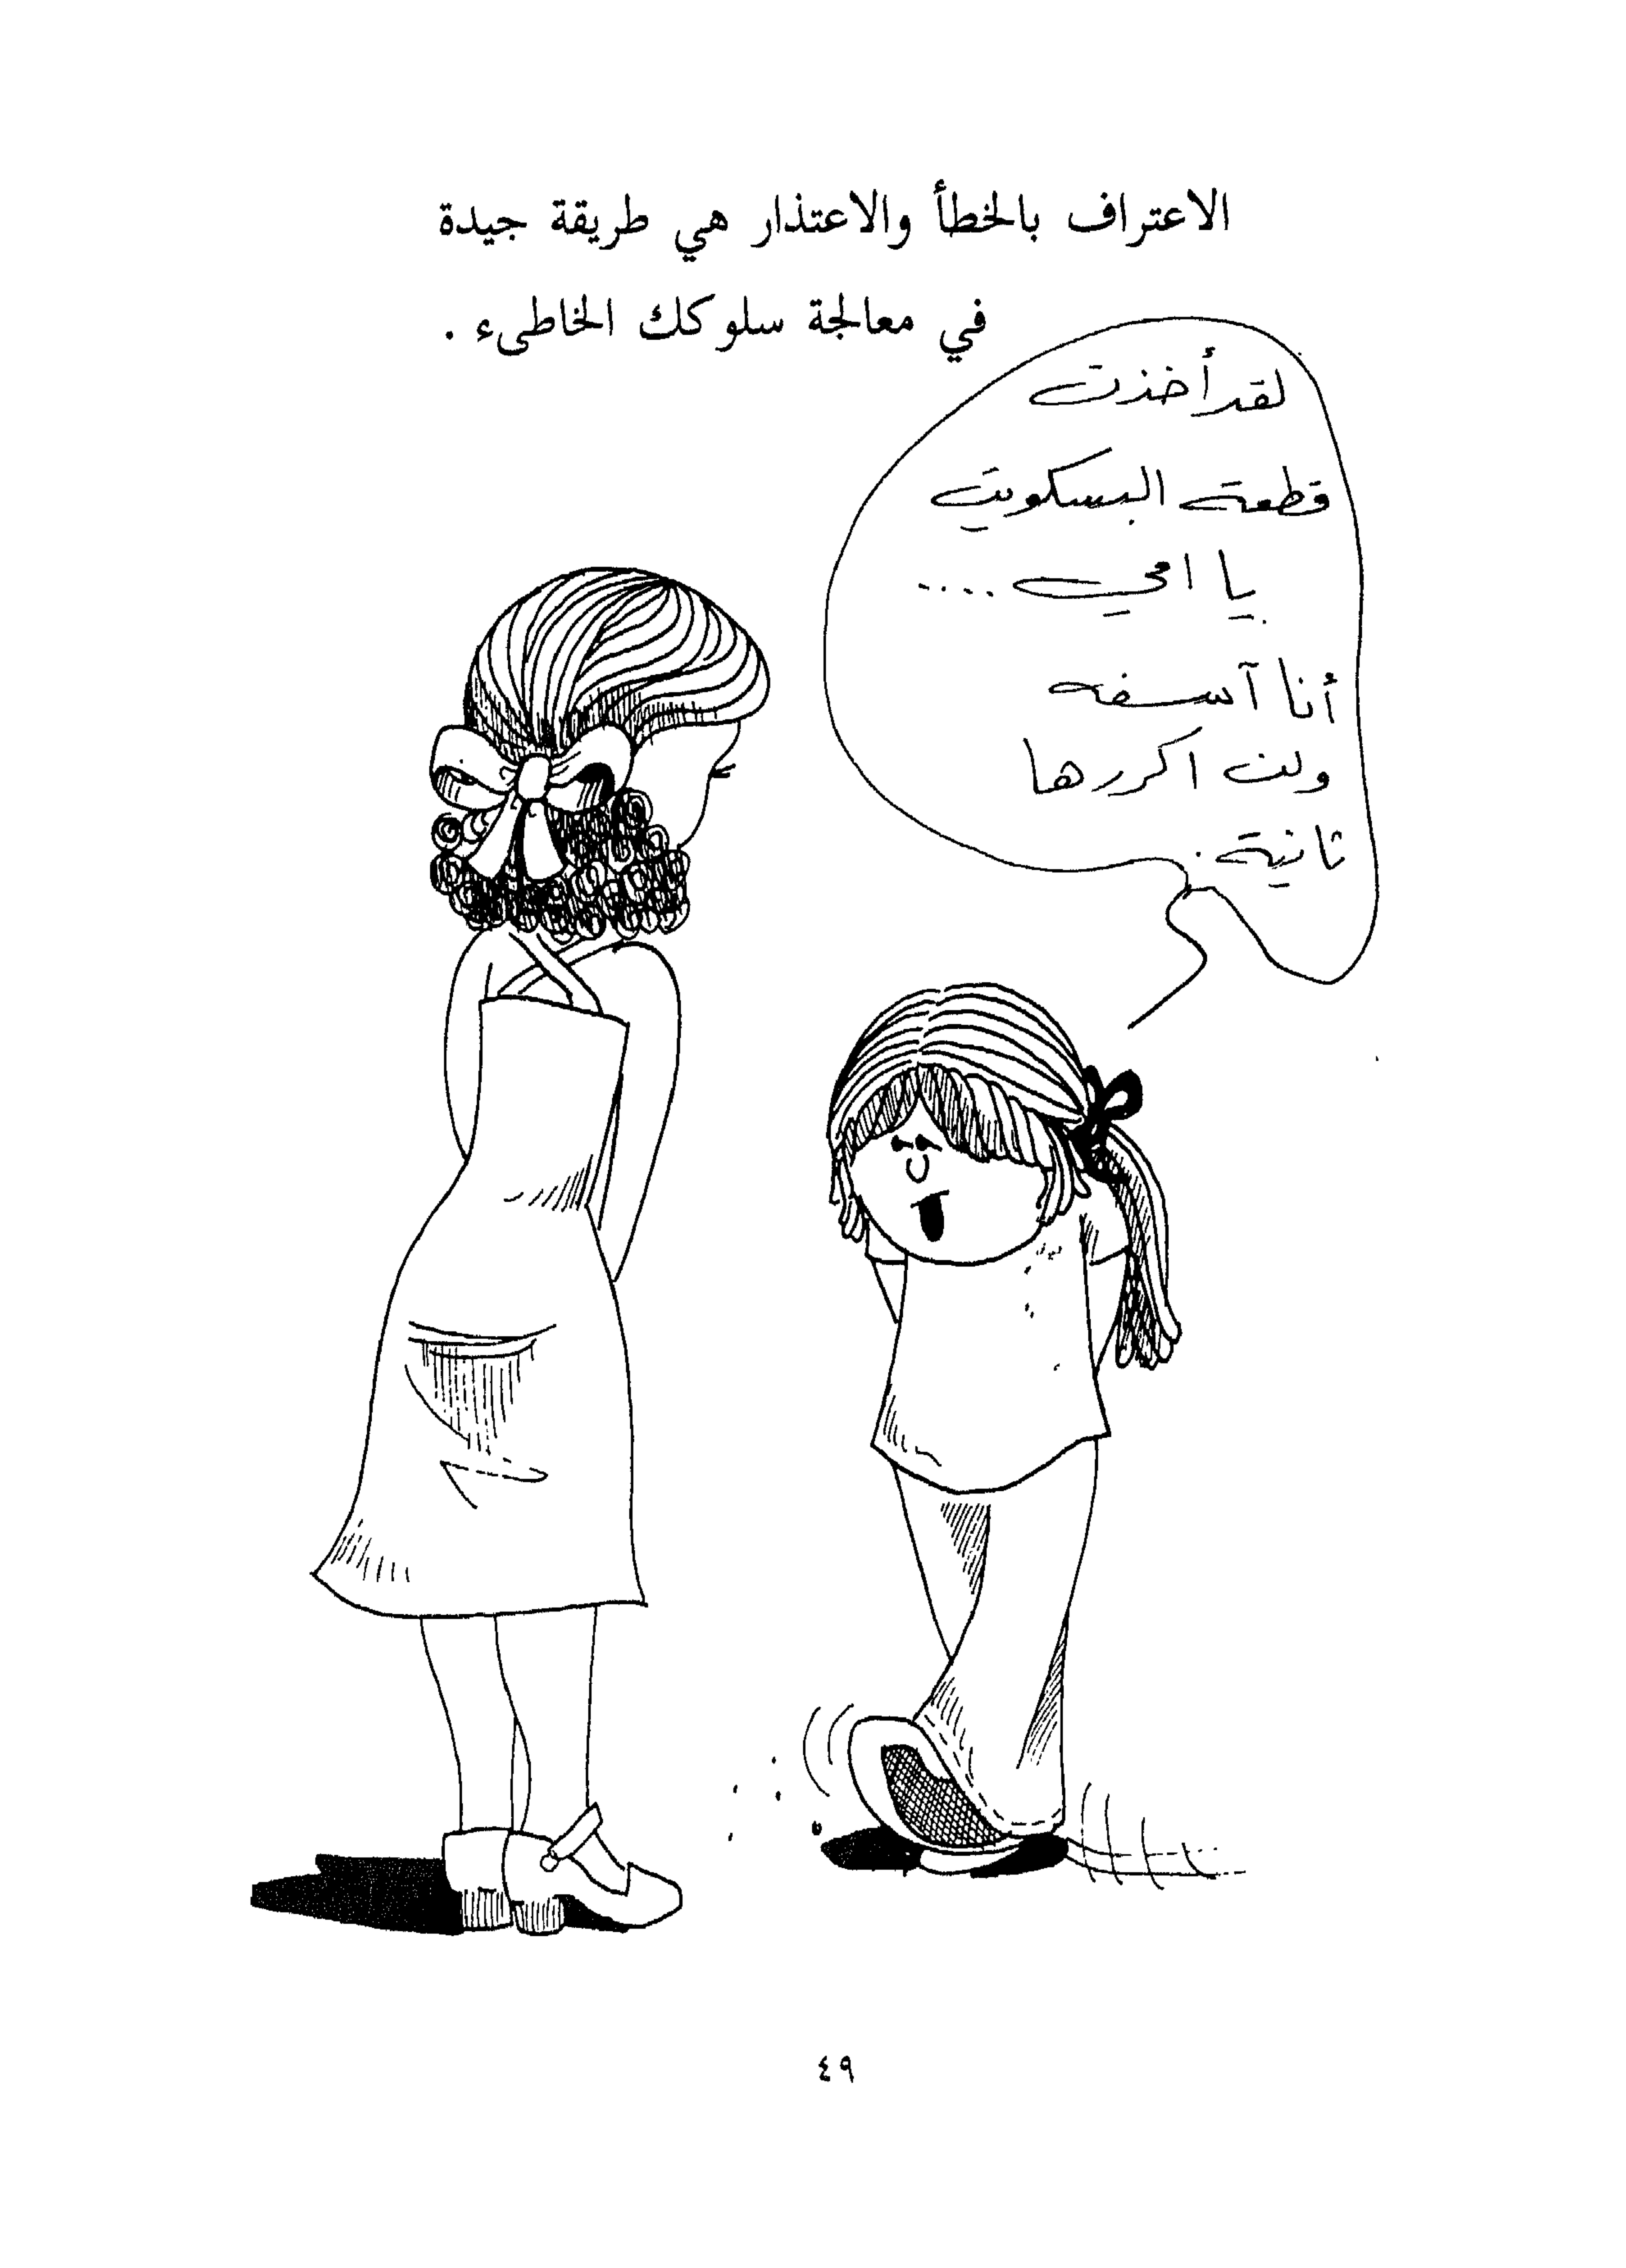 الاعتراف بالخطأ والاعتذار هي طريقة جيدة
في معالجة سلوكك الخاطىء .
لقد أخذت
قطعة البسكويت
يا امي ....
أنا آسفه
ولن اكررها
ثانية .
٤٩